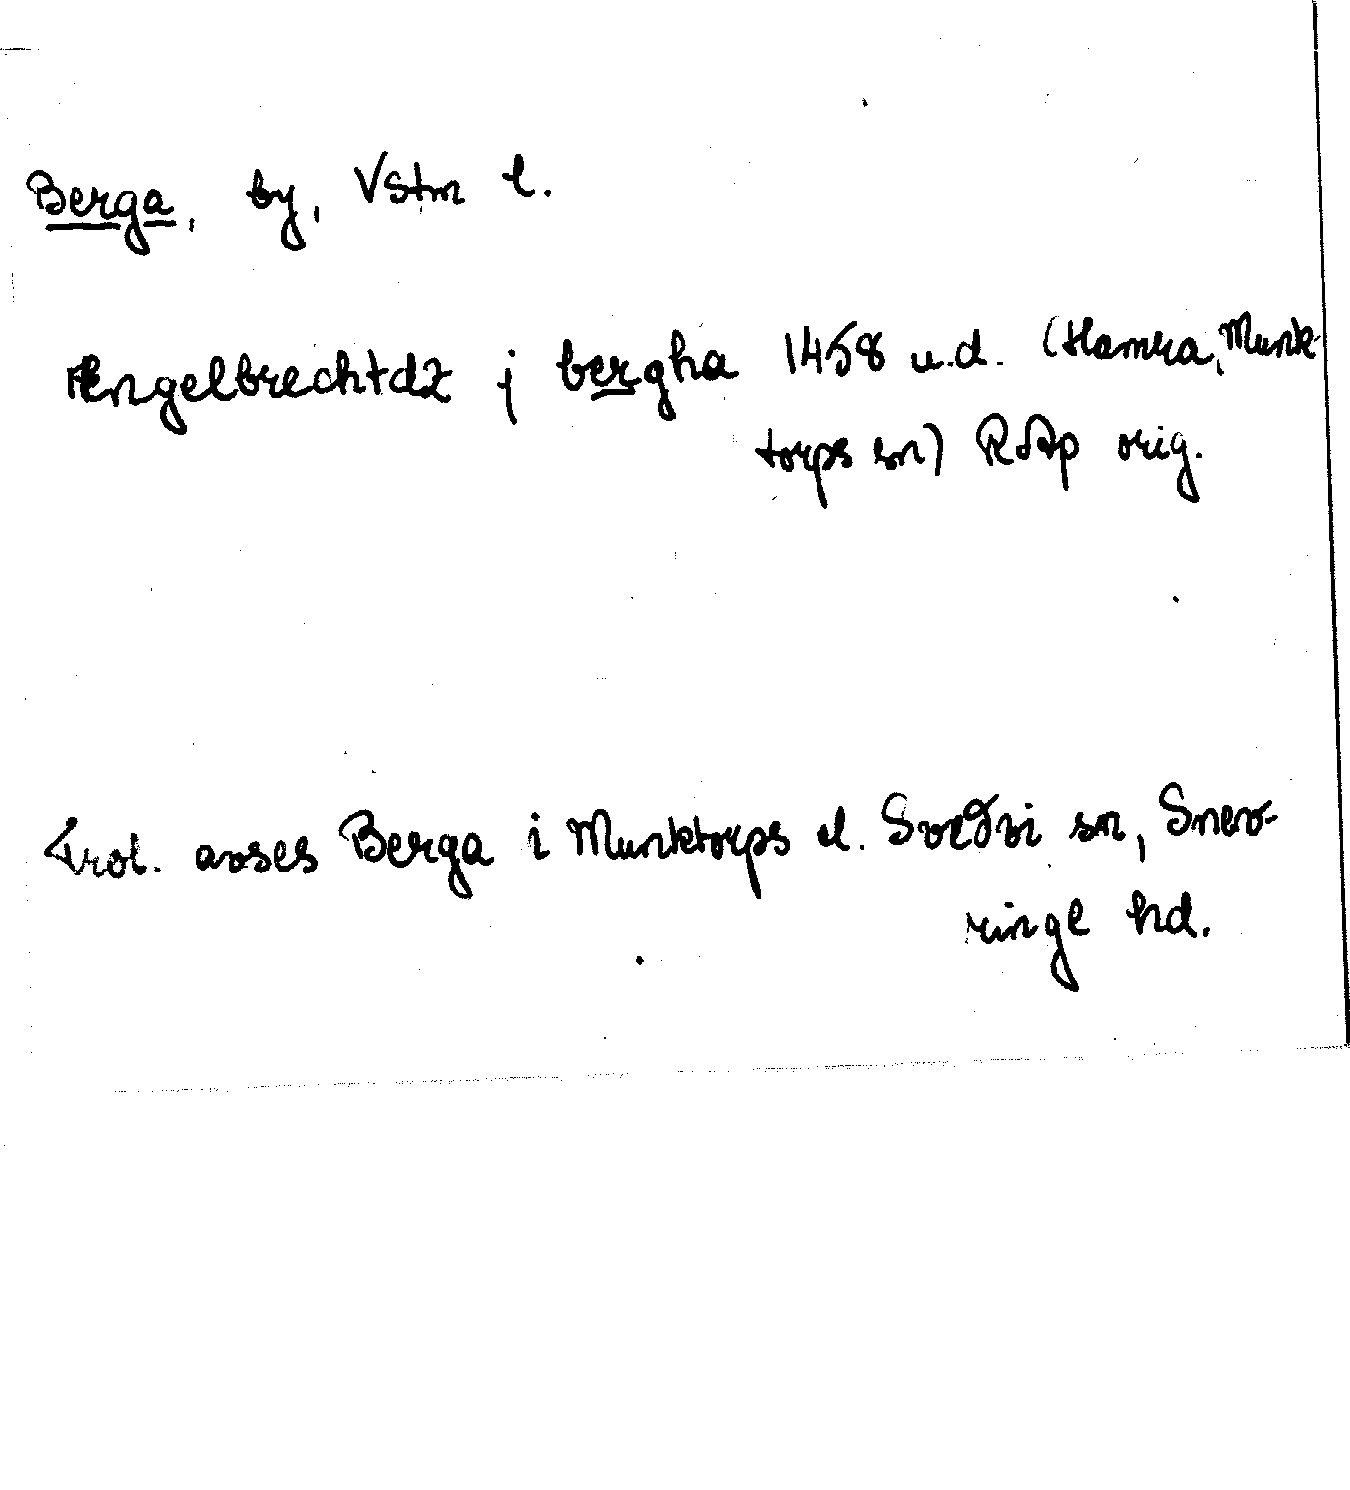 Berga, by, Vstm l.
Engelbrechtdz j bergha 1458 u.d. (Hamra, Munk-
torps sn) RAp orig.
Trol. avses Berga i Munktorps el. Svedvi sn, Snev-
ringe hd.